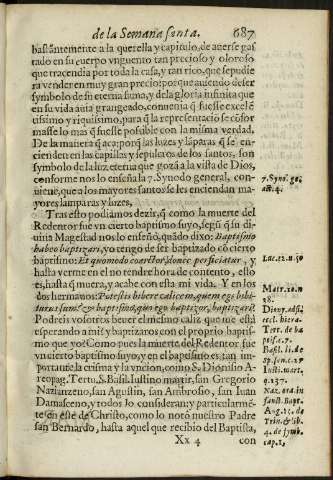 de la Semana santa. 687
bastãntemente a la querella y capitulo, de auerse gas
tado en su cuerpo vnguento tan precioso y oloroso
que tracendia por toda la casa, y tan rico, que sepudie
ra vender en muy gran precio: porque auiendo de ser
symbolo de su eterna suma, y dela gloria infinita que en
en su vida auia grangeado, conuenia q̃ fuesse excelẽ
tissimo y riquissimo, para q̃ la representaciõ se cõfor
masse lo mas q̃ fuesse possible con la misma verdad.
De la manera q̃ aca: porq̃ las luzes y lãparas q̃ se en
cienden en las capillas y sepulcros de los santos, son
symbolo de la luz eterna que goza a la vista de Dios,
conforme nos lo enseña la 7. Synodo general, con-
uiene, que a los mayores santos se les enciendan ma-
yores lamparas y luzes,
7. Syno. ge.
act. 4.
Tras esto podiamos dezir, q̃ como la muerte del
Redentor fue vn cierto baptismo suyo, segũ q̃ su di-
uina Magestad nos lo enseñó, quãdo dixo: Baptismo
habeo baptizari, yo tengo de ser baptizado cõ cierto
baptismo: Et quomodo coarctor, donec perficiatur, y
hasta verme en el no rendre hora de contento, esto
es, hasta q̃ muera, y acabe con esta mi vida. Y en los
dos hermanos: Potestis bibere calicem, quem ego bibi-
turus sum? & baptismo, quo ego baptizor, baptizari?
Luc. 12. n. 50
Matt. 20. n
28.
Podreis vosotros beuer el mesmo caliz que me està
esperando a mi? y baptizaros con el proprio baptis-
mo que yo? Como pues la muerte del Redentor fue
vn cierto baptismo suyo, y en el baptismo es tan im-
portante la crisma y la vncion, como S. Dionisio A-
reopag. Tertu. S. Basil. Iustino martir, san Gregorio
Nazianzeno, san Agustin, san Ambrosio, san Iuan
Damasceno, y todos lo consideran: y particularmẽ-
te en este de Christo, como lo notó nuestro Padre
san Bernardo, hasta aquel que recibio del Baptista,
Diony. adsi.
eccl. hiera-
Tert. de ba
ptis. c. 7.
Basil. li. de
sp. san. c. 27
Iusti. mart.
q. 137.
Naz. ora. in
sanct. Bapt.
Aug. 15. de
Trin. & lib.
4. de symb.
cap. 1.
Xx 4 con